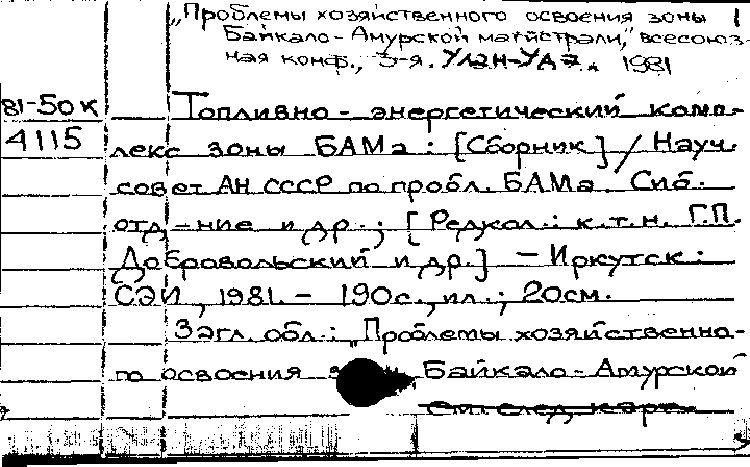 „Проблемы хозяйственного освоения зоны
Байкало-Амурской магистрали", всесоюз-
ная конф., 3-я. Улан-Удэ. 1981
81-50к Топливно-энергетический комп-
4115 лекс зоны БАМа: [Сборник] / Науч.
совет АН СССР по пробл. БАМа. Сиб.
отд-ние и др.; [Редкол.: к.т.н. Г.П.
Добровольский и др.] - Иркутск:
СЭИ, 1981. - 190с., ил.; 20см.
Загл. обл.: „Проблемы хозяйственно-
го освоения Байкало-Амурской
см. след. карт.